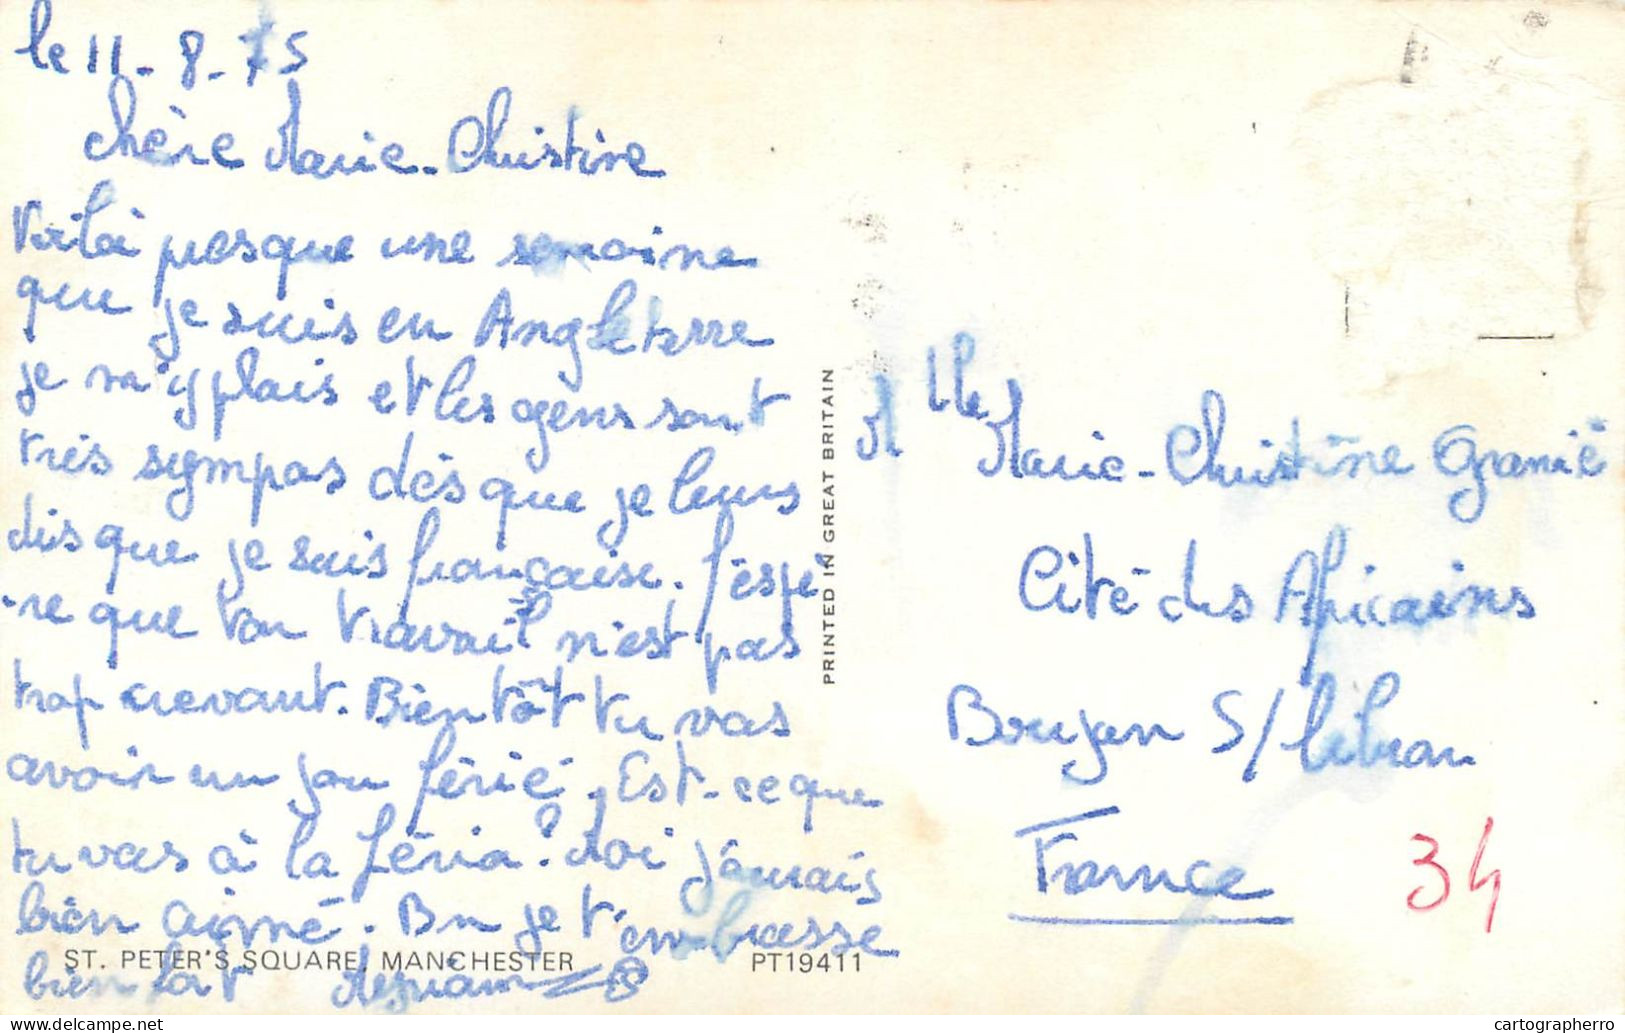 le 11-8-75
chère Marie-Christine
Voilà presque une semaine
que je suis en Angleterre
je m'y plais et les gens sont
très sympas dès que je leurs
dis que je suis française. J'éspè
-re que ton travail n'est pas
trop crevant. Bientôt tu vas
avoir un jou férié. Est-ce que
tu vas à la féria? Moi j'aurais
bien aimé. Bn je t'embrasse
bien fort
ST. PETER'S SQUARE, MANCHESTER
PT19411
PRINTED IN GREAT BRITAIN
Mlle
Marie-Christine Granié
Cité des Africains
Boujan S/ Libron
France
34
cartographerro